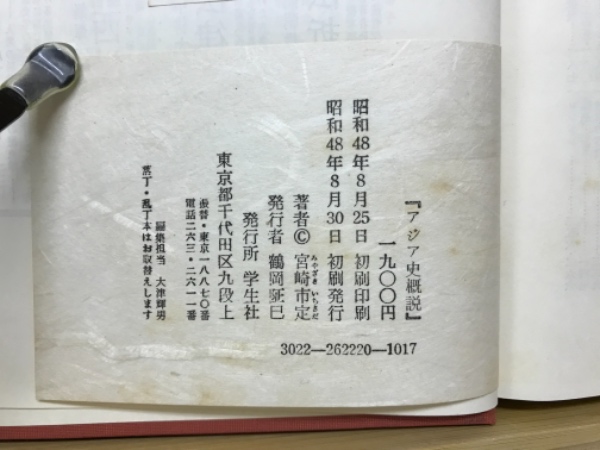 『アジア史概説』
一九〇〇円
昭和48年8月25日 初刷印刷
昭和48年8月30日 初刷発行
著者© 宮崎市定
みやざき いちさだ
発行者 鶴岡阷巳
発行所 学生社
東京都千代田区九段上
振替・東京一八八七〇番
電話二六三・二六一一番
編集担当 大津輝男
落丁・乱丁本はお取替えします
3022—262220—1017